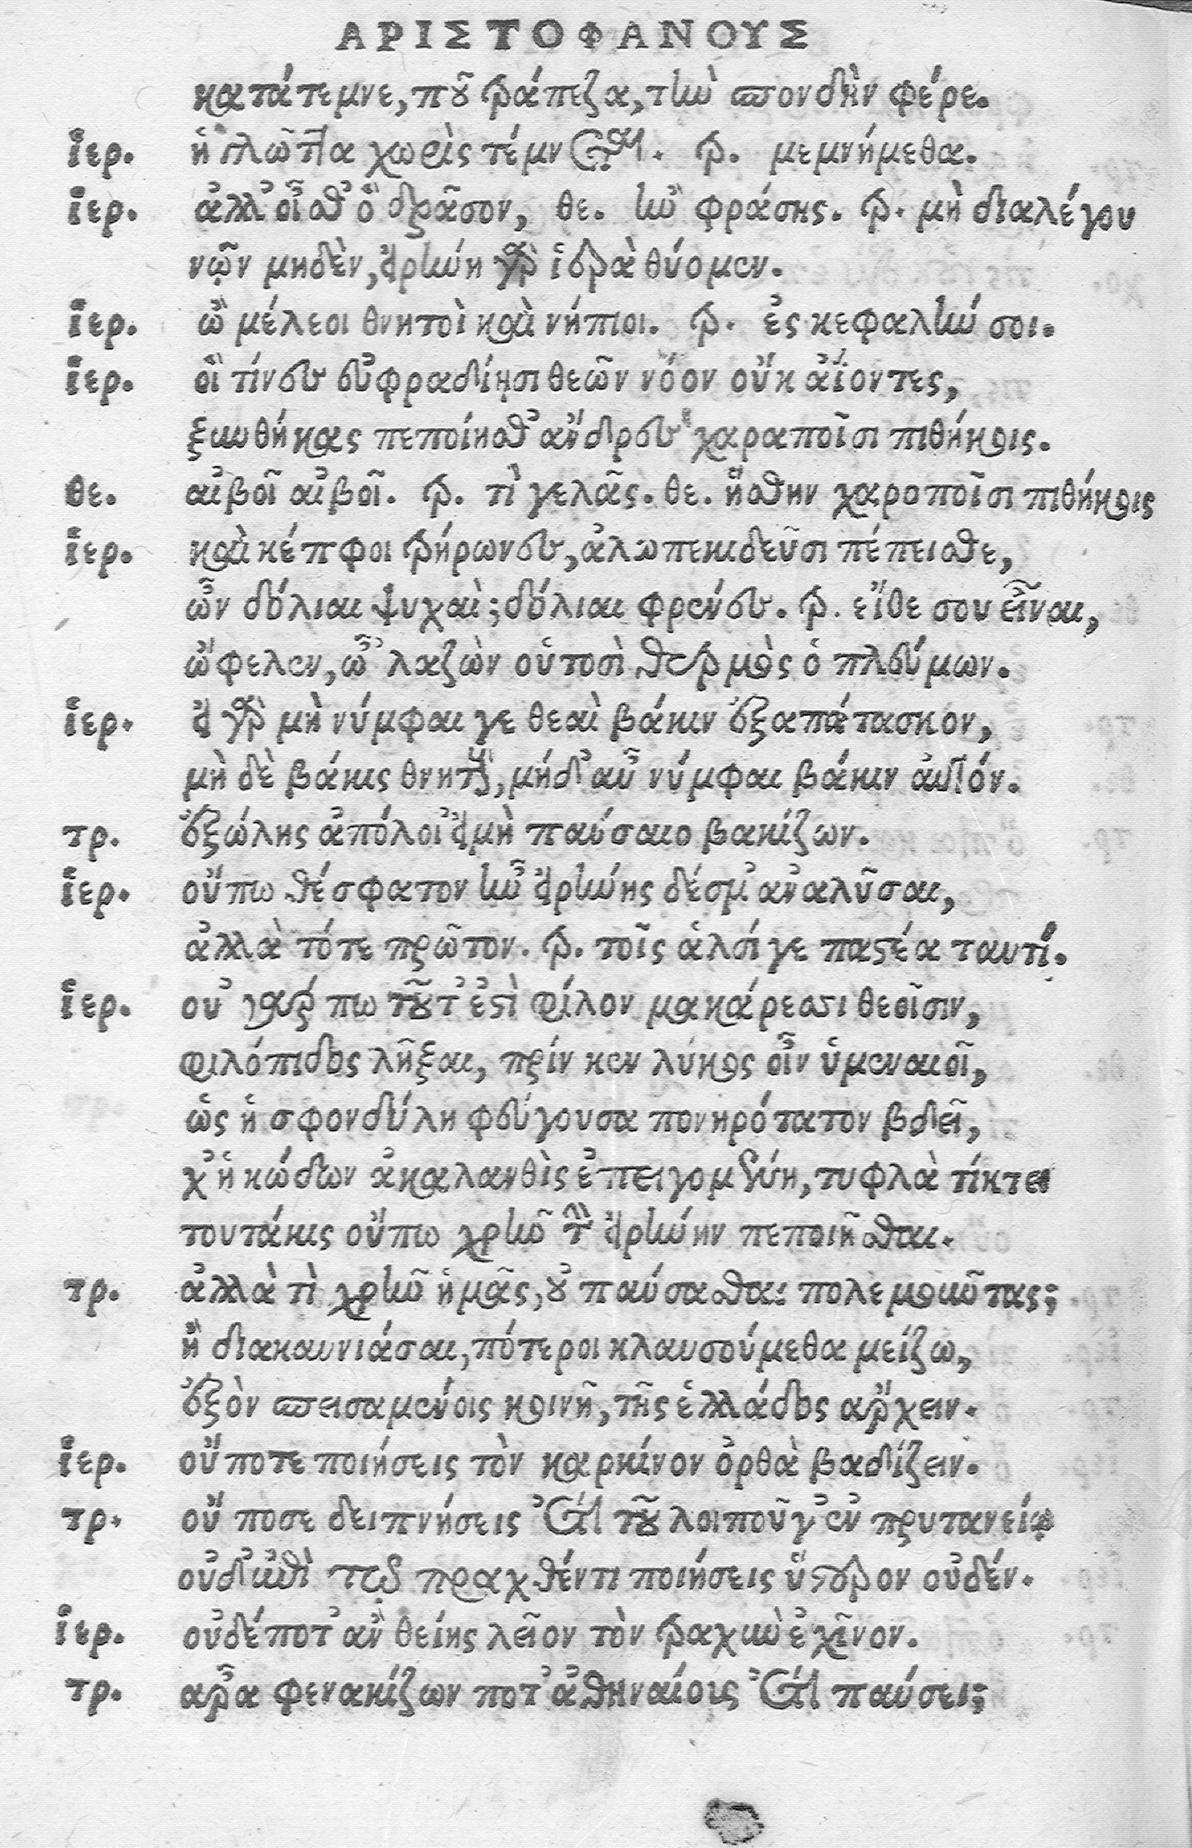 ΑΡΙΣΤΟΦΑΝΟΥΣ
κατάτεμνε, ποῦ τράπεζα, τὴν σπονδὴν φέρε.
ἱερ. ἡ γλῶττα χωρὶς τέμνεται. τρ. μεμνήμεθα.
ἱερ. ἀλλ' οἶσθ' ὃ δρᾶσον, θε. ἢν φράσῃς. τρ. μὴ διαλέγου
νῷν μηδὲν, εἰρήνῃ γὰρ ἱερὰ θύομεν.
ἱερ. ὦ μέλεοι θνητοὶ καὶ νήπιοι. τρ. ἐς κεφαλήν σοι.
ἱερ. οἵ τινες ἀφραδίῃσι θεῶν νόον οὐκ ἀΐοντες,
ξυνθήκας πεποίησθ' ἄνδρες χαραποῖσι πιθήκοις.
θε. αἰβοῖ αἰβοῖ. τρ. τὶ γελᾶς. θε. ἥσθην χαροποῖσι πιθήκοις
ἱερ. καὶ κέπφοι τρήρωνες, ἀλωπεκιδεῦσι πέπεισθε,
ὧν δόλιαι ψυχαὶ; δόλιαι φρένες. τρ. εἴθε σου εἶναι,
ὤφελεν, ὦ 'λαζὼν οὑτοσὶ θερμὸς ὁ πλεύμων.
ἱερ. εἰ γὰρ μὴ νύμφαι γε θεαὶ βάκιν ἐξαπάτασκον,
μὴ δὲ βάκις θνητοὺς, μήδ' αὖ νύμφαι βάκιν αὐτόν.
τρ. ἐξώλης ἀπόλοι' εἰ μὴ παύσαιο βακίζων.
ἱερ. οὔπω θέσφατον ἦν εἰρήνης δέσμ' ἀναλῦσαι,
ἀλλὰ τότε πρῶτον. τρ. τοῖς ἁλσί γε παστέα ταυτί.
ἱερ. οὐ γάρ πω τοῦτ' ἐστὶ φίλον μακάρεσσι θεοῖσιν,
φιλόπιδος λῆξαι, πρίν κεν λύκος οἶν ὑμεναιοῖ,
ὡς ἡ σφονδύλη φεύγουσα πονηρότατον βδεῖ,
χ' ἡ κώδων ἀκαλανθὶς ἐπειγομένη, τυφλὰ τίκτει
τουτάκις οὔπω χρῆν τὴν εἰρήνην πεποιῆσθαι.
τρ. ἀλλὰ τὶ χρῆν ἡμᾶς, οὐ παύσασθαι πολεμοῦντας;
ἢ διακαυνιάσαι, πότεροι κλαυσούμεθα μείζω,
ἐξὸν σπεισαμένοις κοινῇ, τῆς ἑλλάδος ἄρχειν.
ἱερ. οὔποτε ποιήσεις τὸν καρκίνον ὀρθὰ βαδίζειν.
τρ. οὔ ποτε δειπνήσεις ἔτι τοῦ λοιποῦ γ' ἐν πρυτανείῳ
οὐδ' ἐπὶ τῷ πραχθέντι ποιήσεις ὕστερον οὐδέν.
ἱερ. οὐδέποτ' ἂν θείης λεῖον τὸν τραχὺν ἐχῖνον.
τρ. ἆρα φενακίζων ποτ' ἀθηναίους ἔτι παύσει;